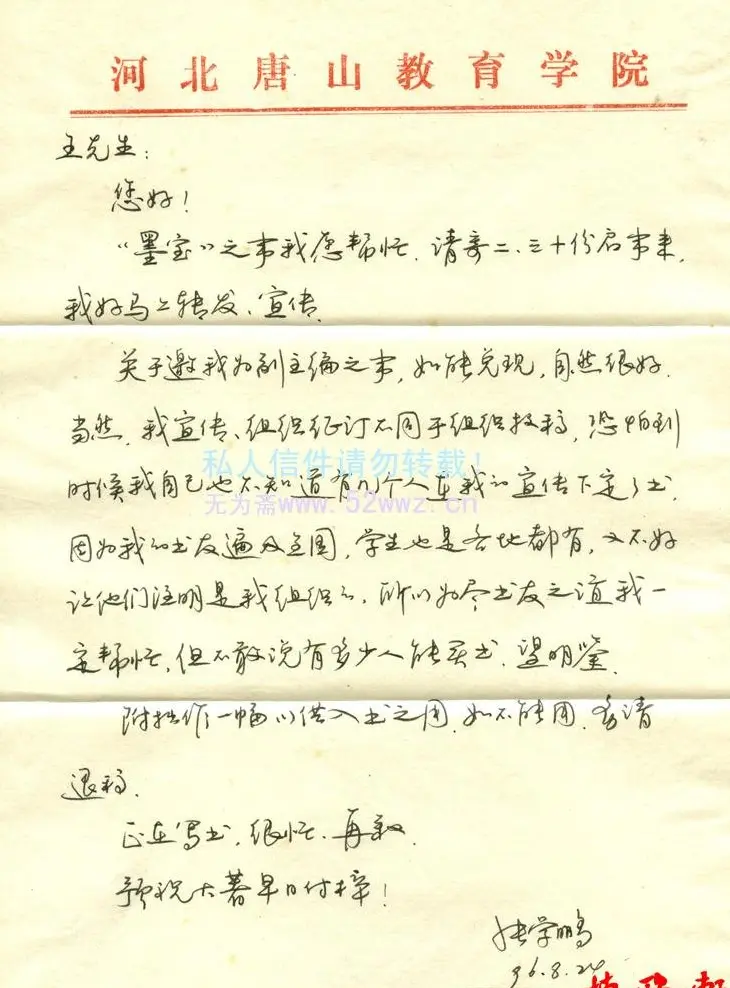 河北唐山教育学院
王先生：
您好！
“墨宝”之事我愿帮忙．请寄二、三十份启事来，
我好马上转发、宣传．
关于邀我为副主编之事，如能兑现，自然很好．
当然，我宣传、组织征订不同于组织投稿，恐怕到
私人信件请勿转载！
时候我自己也不知道有几个人在我的宣传下定了书．
无为斋www.52wwz.cn
因为我的书友遍及全国，学生也是各地都有，又不好
让他们注明是我组织的．所以为尽书友之道我一
定帮忙，但不敢说有多少人能买书．望明鉴．
附拙作一幅以供入书之用．如不能用．务请
退稿．
正在写书，很忙、再叙．
预祝大著早日付梓！
张学鹏
96.8.24